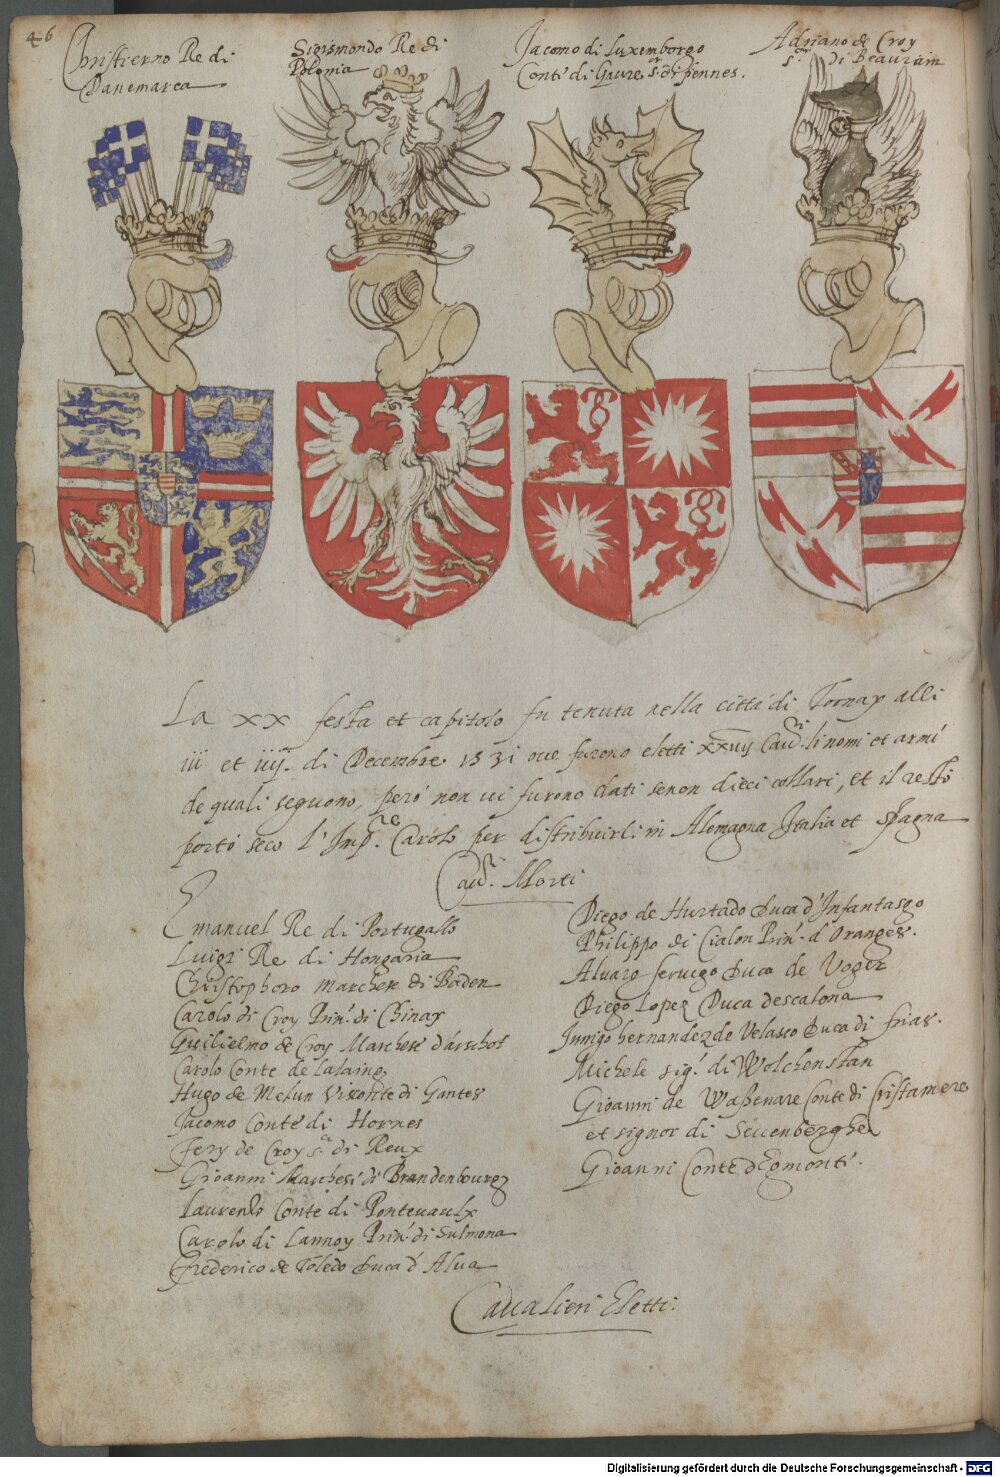 46
Christierno Re di
Danemarca
Sigismondo Re di
Polonia
Jacomo di Luxemborgo
Conte di Gaure s.or di fiennes.
Adriano de Croy
s.or di Beaurain
La XX festa et capitolo fu tenuta nella città di Tornay alli
iii et iiij. di Decembre 1531 oue furono eletti xxiiij Caud.ri li nomi et armi
de quali seguono, però non ui furono dati senon dieci collari, et il resto
portò seco l'Imp.re Carolo per distribuirli in Alemagna Italia et Spagna
Caud.ri Morti
Emanuel Re di Portugallo
Luigi Re di Hongaria
Christophoro Marchese di Baden
Carolo di Croy Prin.e di Chimay
Guilielmo de Croy Marchese d'arschot
Carolo Conte de Lalaing
Hugo de Melun Visconte di Gantes
Jacomo Conte di Hornes
Fery de Croy s.or di Reux
Gioanni Marchese di Brandenbourg
Laurenso Conte di Ponteuaulx
Carolo di Lannoy Prin.e di Sulmona
Frederico de Toledo Duca d'Alua
Diego de Hurtado Duca d'Infantasgo
Philippo di Cialon Prin.e d'Oranges.
Aluaro Duca de
Diego Lopez Duca descalona
Innigo hernandez de Velasco Duca di frias.
Michele sig.r di Wolchenstan
Gioanni de Waßenare Conte di Cristamere
et signor di Seuenberghe
Gioanni Conte d'Egmont.
Caualieri Eletti.
Digitalisierung gefördert durch die Deutsche Forschungsgemeinschaft - DFG